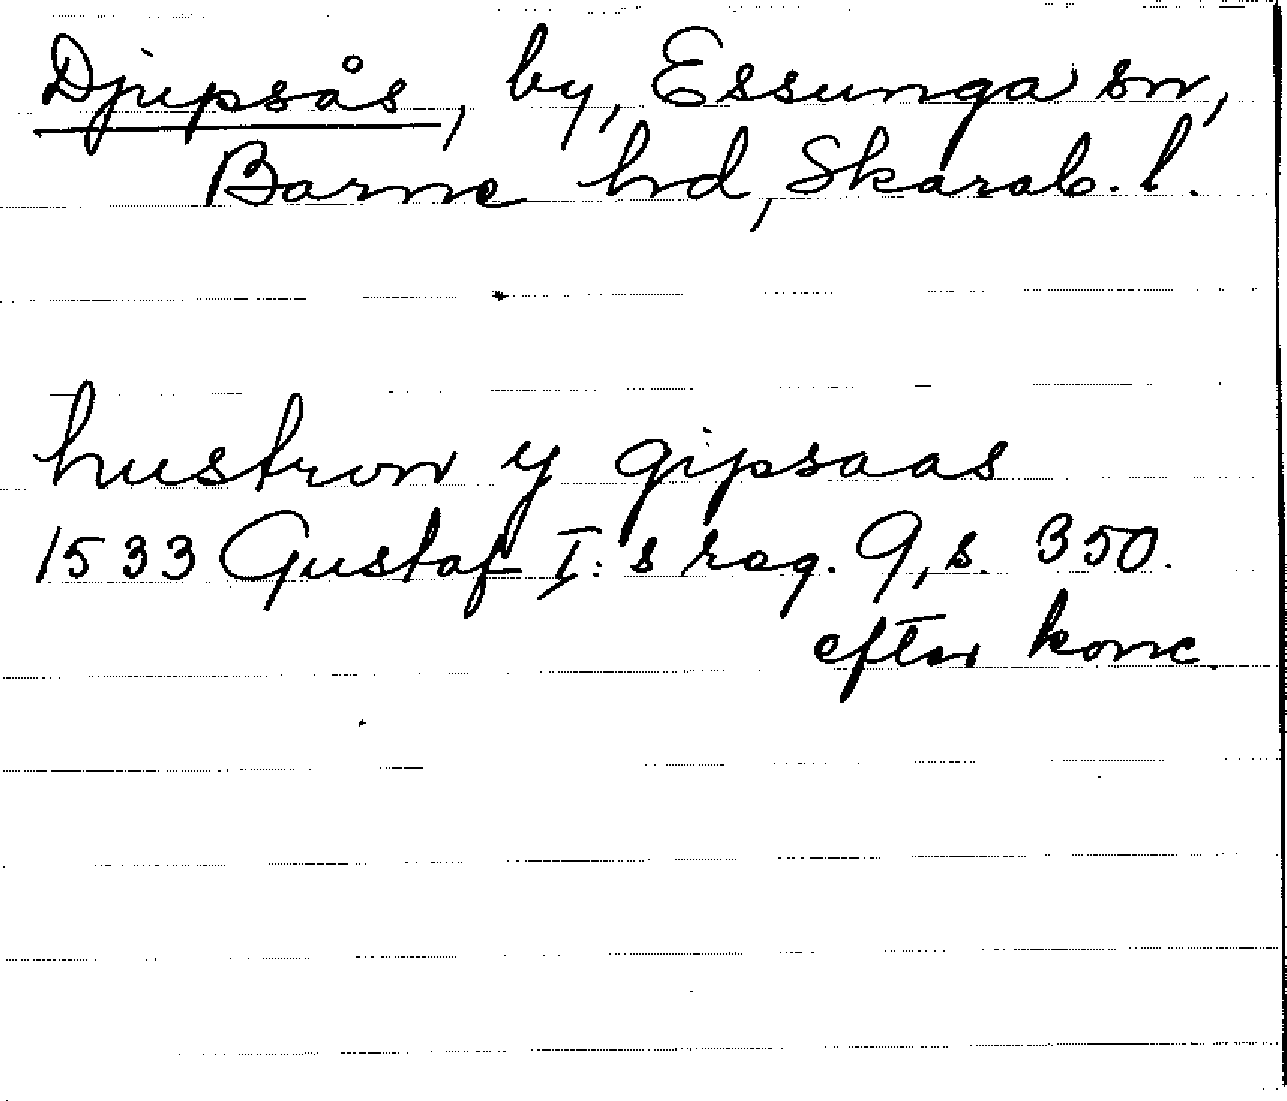 Djupsås, by, Essunga sn,
Barne hd, Skarab. l.
hustron y gipsaas
1533 Gustaf I:s reg. 9, s. 350.
efter konc.